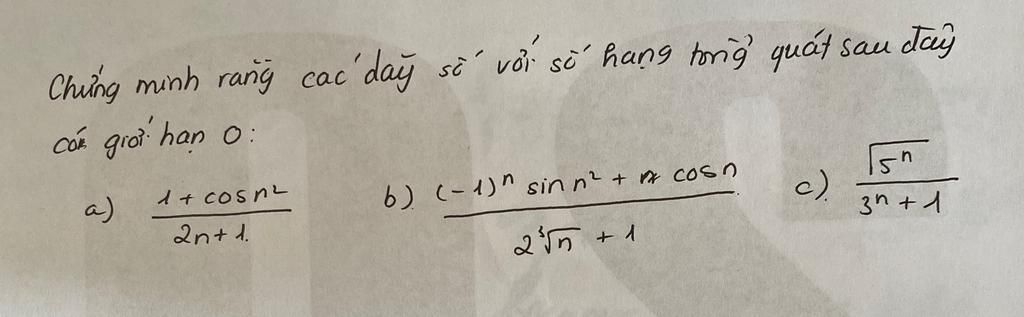 Chứng minh rằng các dãy số với số hạng tổng quát sau đây
có giới hạn 0:
a) (1 + cosn²)/(2n+1.) b) ((-1)ⁿ sin n² + cosn)/(2∛n + 1) c). √(5ⁿ)/(3ⁿ + 1)